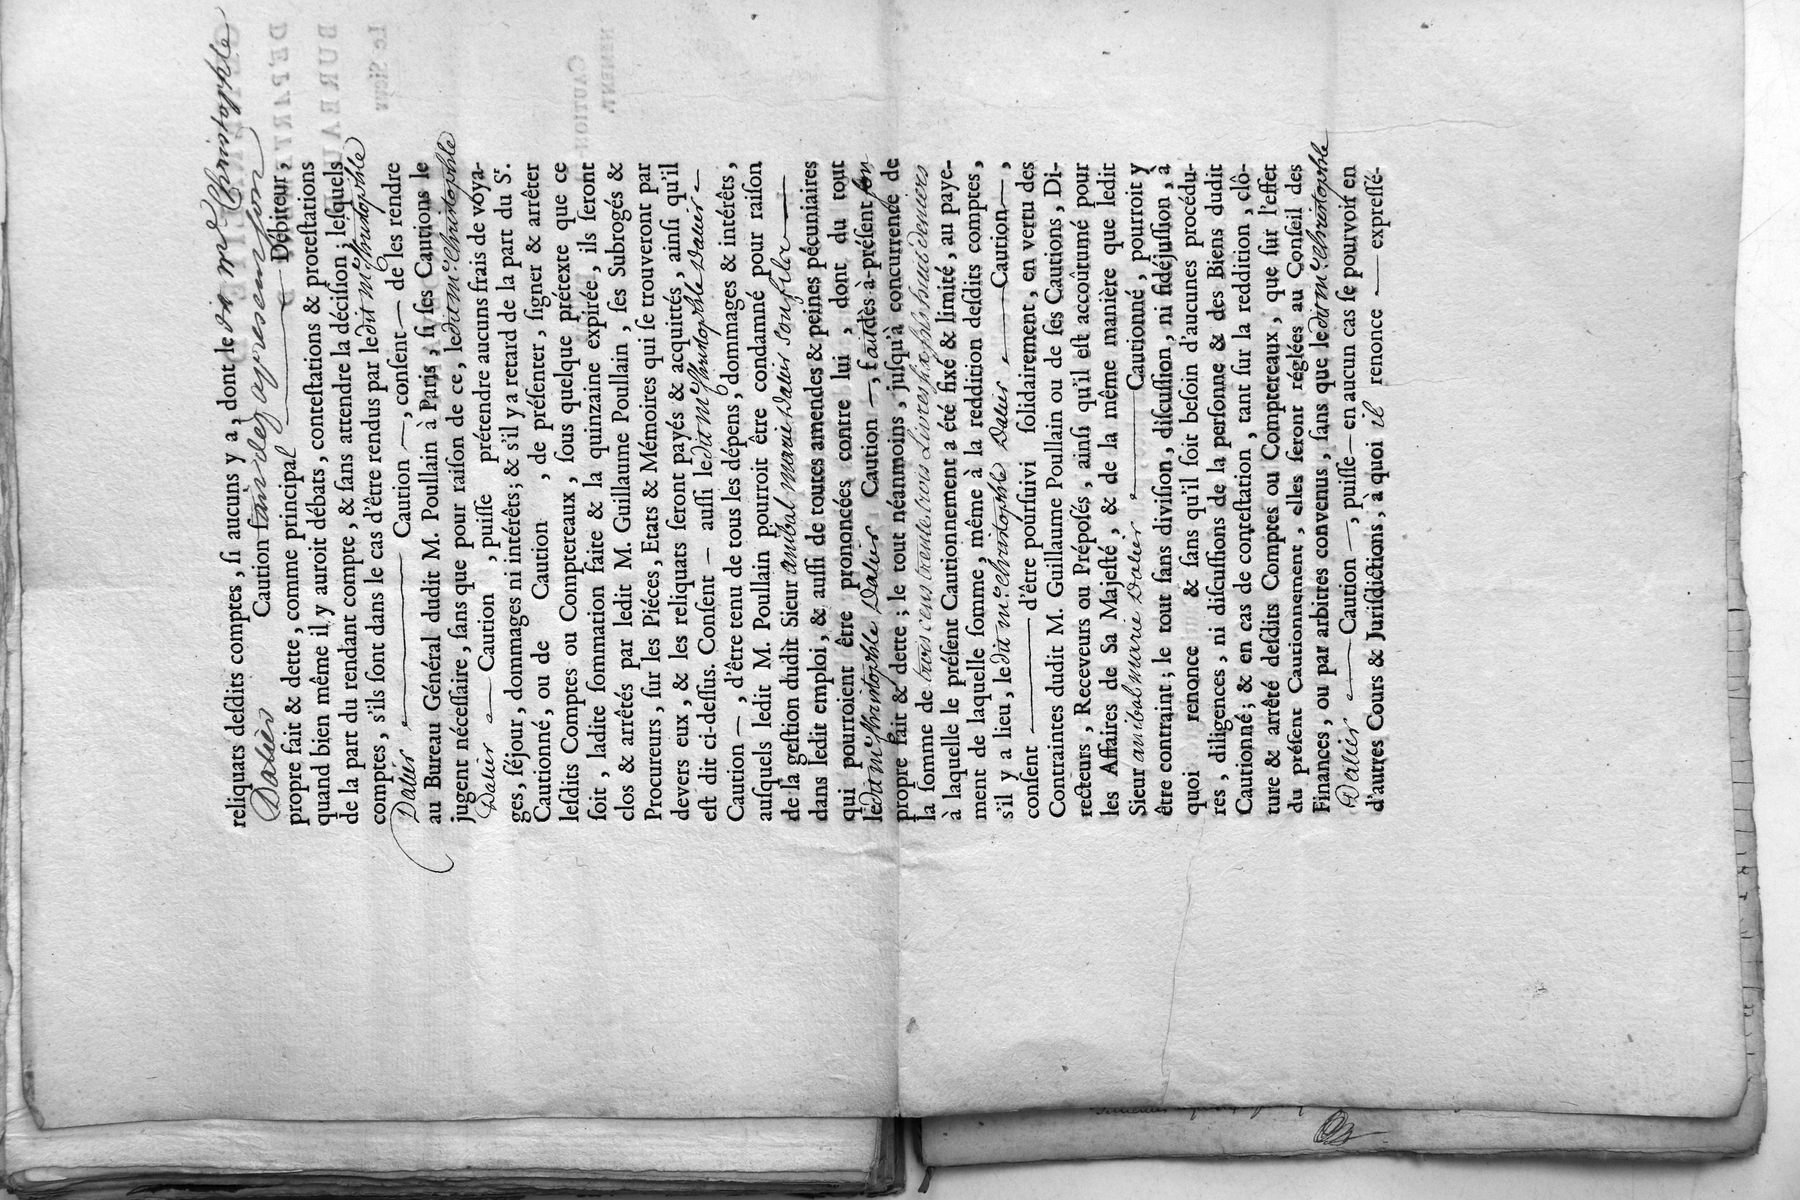 reliquats deſdits comptes, ſi aucuns y a, dont le dit Me Chriſtophle
Dalier Caution fait dez apresent ſon
propre fait & dette, comme principal Débiteur;
quand bien même il y auroit débats, conteſtations & proteſtations
de la part du rendant compte, & ſans attendre la déciſion; leſquels
comptes, s'ils ſont dans le cas d'être rendus par ledit Me Chriſtophle
Dalier Caution —, conſent — de les rendre
au Bureau Général dudit M. Poullain à Paris, ſi ſes Cautions le
jugent néceſſaire, ſans que pour raiſon de ce, ledit Me Chriſtophle
Dalier — Caution, puiſſe prétendre aucuns frais de voya-
ges, ſéjour, dommages ni intérêts; & s'il y a retard de la part du Sr.
Cautionné, ou de Caution, de préſenter, ſigner & arrêter
leſdits Comptes ou Comptereaux, ſous quelque prétexte que ce
ſoit, ladite ſommation faite & la quinzaine expirée, ils ſeront
clos & arrêtés par ledit M. Guillaume Poullain, ſes Subrogés &
Procureurs, ſur les Piéces, Etats & Mémoires qui ſe trouveront par
devers eux, & les reliquats ſeront payés & acquittés, ainſi qu'il
eſt dit ci-deſſus. Conſent — auſſi ledit Me Chriſtophle Dalier —
Caution —, d'être tenu de tous les dépens, dommages & intérêts,
auſquels ledit M. Poullain pourroit être condamné pour raiſon
de la geſtion dudit Sieur anibal marie Dalier son fils —
dans ledit emploi, & auſſi de toutes amendes & peines pécuniaires
qui pourroient être prononcées contre lui, dont du tout
ledit Me Chriſtophle Dalier Caution —, fait dès-à-préſent ſon
propre fait & dette; le tout néanmoins, juſqu'à concurrence de
la ſomme de trois cens trente trois Livres six sols huit deniers
à laquelle le préſent Cautionnement a été fixé & limité, au paye-
ment de laquelle ſomme, même à la reddition deſdits comptes,
s'il y a lieu, ledit Me Chriſtophle Dalier — Caution —,
conſent — d'être pourſuivi ſolidairement, en vertu des
Contraintes dudit M. Guillaume Poullain ou de ſes Cautions, Di-
recteurs, Receveurs ou Prépoſés, ainſi qu'il eſt accoûtumé pour
les Affaires de Sa Majeſté, & de la même manière que ledit
Sieur anibal marie Dalier — Cautionné, pourroit y
être contraint; le tout ſans diviſion, diſcuſſion, ni fidéjuſſion, à
quoi renonce & ſans qu'il ſoit beſoin d'aucunes procédu-
res, diligences, ni diſcuſſions de la perſonne & des Biens dudit
Cautionné; & en cas de conteſtation, tant ſur la reddition, clô-
ture & arrêté deſdits Comptes ou Comptereaux, que ſur l'effet
du préſent Cautionnement, elles ſeront réglées au Conſeil des
Finances, ou par arbitres convenus, ſans que ledit Me Chriſtophle
Dalier — Caution —, puiſſe — en aucun cas ſe pourvoir en
d'autres Cours & Juriſdictions, à quoi il renonce — expreſſé-